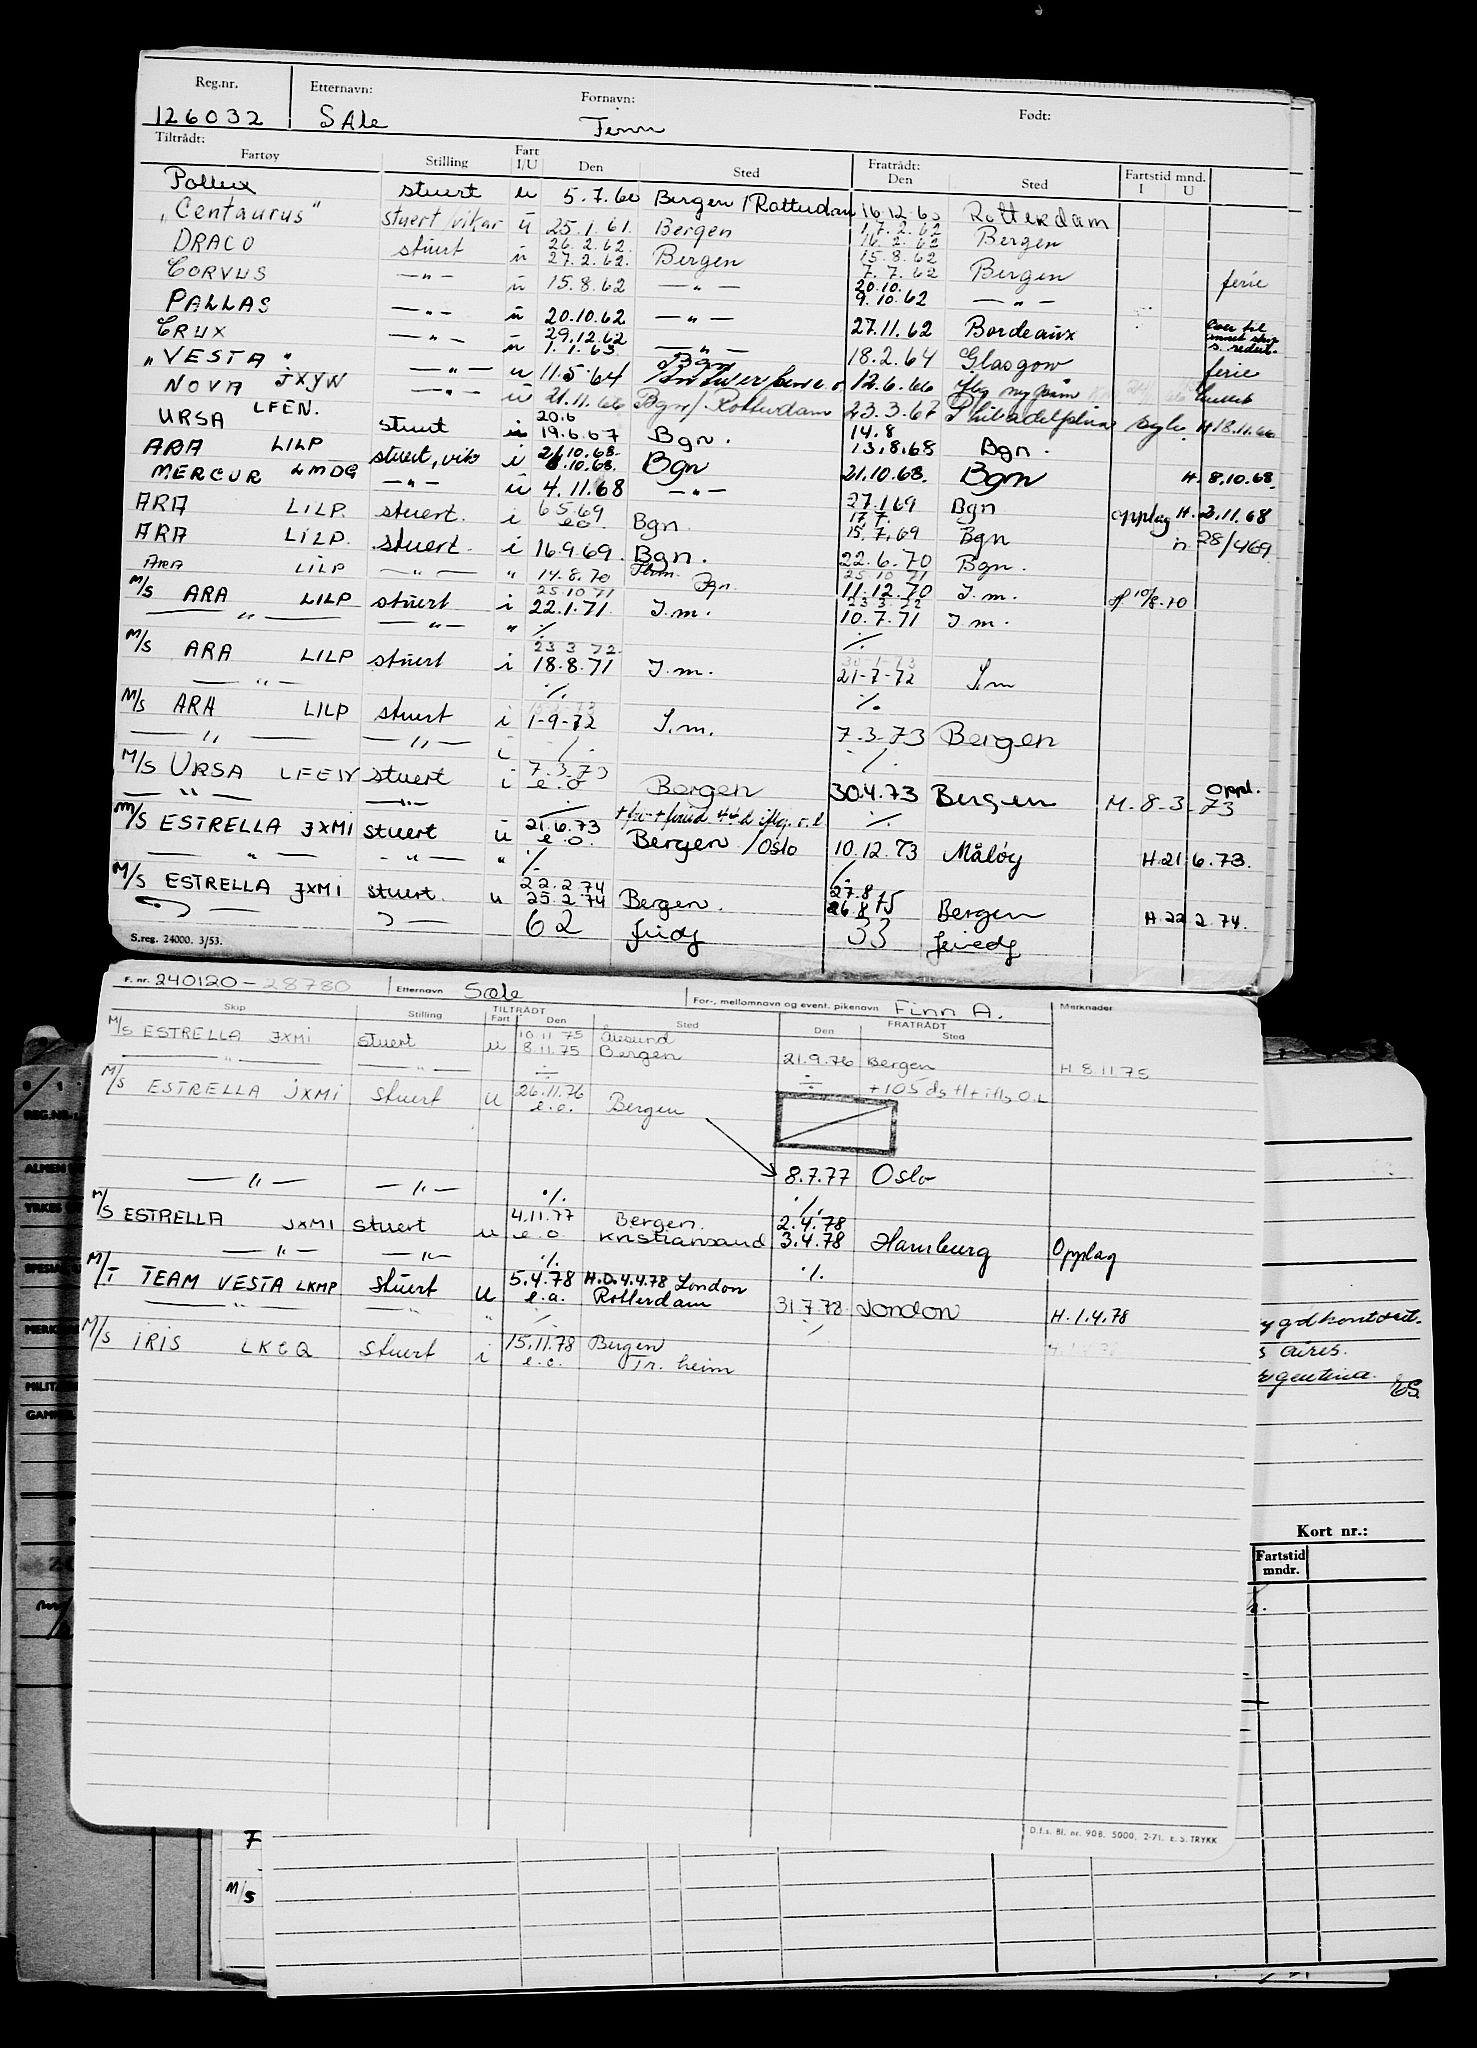 Reg.nr. Etternavn: Fornavn: Født:
126032 SÆle Finn
Tiltrådt: Fratrådt: Fartstid mnd.
Fartøy Stilling Fart I/U Den Sted Den Sted I U
Pollux stuert u 5.7.60 Bergen / Rotterdam 16.12.60 Rotterdam
"Centaurus" stuert vikar u 25.1.61. Bergen 17.2.62 16.2.62 Bergen
DRACO stuert u 26.2.62. 27.2.62. Bergen 15.8.62 7.7.62 Bergen ferie
CORVUS — " — u 15.8.62 — " — 20.10. 9.10.62 — " —
PALLAS — " — u 20.10.62 — " — 27.11.62 Bordeaux
CRUX — " — u 29.12.62 1.1.63 — " — 18.2.64 Glasgow ferie
"VESTA" — " — u 11.5.64 Bgn 12.6.66
NOVA JXYW — " — u 21.11.66 Bgn / Rotterdam 23.3.67 Philadelphia syk. H 18.11.66
URSA LFEN. stuert 20.6 19.6.67 Bgn. 14.8 13.8.68 Bgn.
ARA LILP stuert, vik i 21.10.68. 8.10.68. Bgn 21.10.68. Bgn H. 8.10.68.
MERCUR LMDG — " — u 4.11.68 — " — 27.1.69 Bgn opplag H. 2.11.68
ARA LILP. stuert. i 6.5.69 e.o. Bgn. 17.7. 15.7.69 Bgn n 28/4 69
ARA LILP. stuert. i 16.9.69. Bgn. 22.6.70 Bgn.
ARA LILP — " — " 14.8.70 Thm. Bgn. 25 10 71 11.12.70 I.m. 10/8.70
M/S ARA LILP stuert i 25 10 71 22.1.71 I.m. 23 3 72 10.7.71 I.m.
— " — — " — " ./. ./.
M/S ARA LILP stuert i 23 3 72. 18.8.71 I.m. 30-1-73 21-7-72 I.m
— " — ./. ./.
M/S ARA LILP stuert i 1-9-72 I.m. 7.3-73 Bergen
— " — — " — i ./. ./.
M/S URSA LFEN stuert i 7.3.73 e.o Bergen 30.4.73 Bergen M-8-3-73 Oppl.
— " — — " — ./. ./.
M/S ESTRELLA JXMI stuert u 21.6.73 e.o. Bergen / Oslo 10.12.73 Måløy H.21 6.73.
— " — - " — " ./. ./.
M/S ESTRELLA JXMI stuert. u 22.2.74 25.2.74 Bergen. 27.8 26.8.75 Bergen H.22 2.74.
62 33
S.reg. 24000. 3/53.
F. nr. 240120-28780 Etternavn Sæle For-, mellomnavn og event. pikenavn Finn A. Merknader
TILTRÅDT FRATRÅDT
Skip Stilling Fart Den Sted Den Sted
M/S ESTRELLA JXMI stuert u 10 11 75 8.11.75 Ålesund Bergen 21.9.76 Bergen H. 8.11.75
— " — — " — ÷ ÷ +105 ds
M/S ESTRELLA JXMI stuert u 26.11.76 e.o. Bergen
8.7.77 Oslo
— " — — " — ./. ./.
M/S ESTRELLA JXMI stuert u 4.11.77 e.o. Bergen. Kristiansand 2.4.78 3.4.78 Hamburg Opplag
— " — — " — ./. ./.
M/T TEAM VESTA LKMP stuert u 5.4.78 e.o. H.D. 4.4.78 London Rotterdam 31.7.78. London H. 1.4.78
— " — — " — " ./. ./.
M/S IRIS LKCQ stuert i 15.11.78 e.o. Bergen Tr. heim
D.f.s. Bl. nr. 90B. 5000, 2-71. E. S. TRYKK
REG.NR.
ALMEN
YRKES
SPESIAL
MERK
MILITÆR
GAMMEL
s aires.
rgentina. ES.
Kort nr.:
Fartstid mndr.
7
M/S